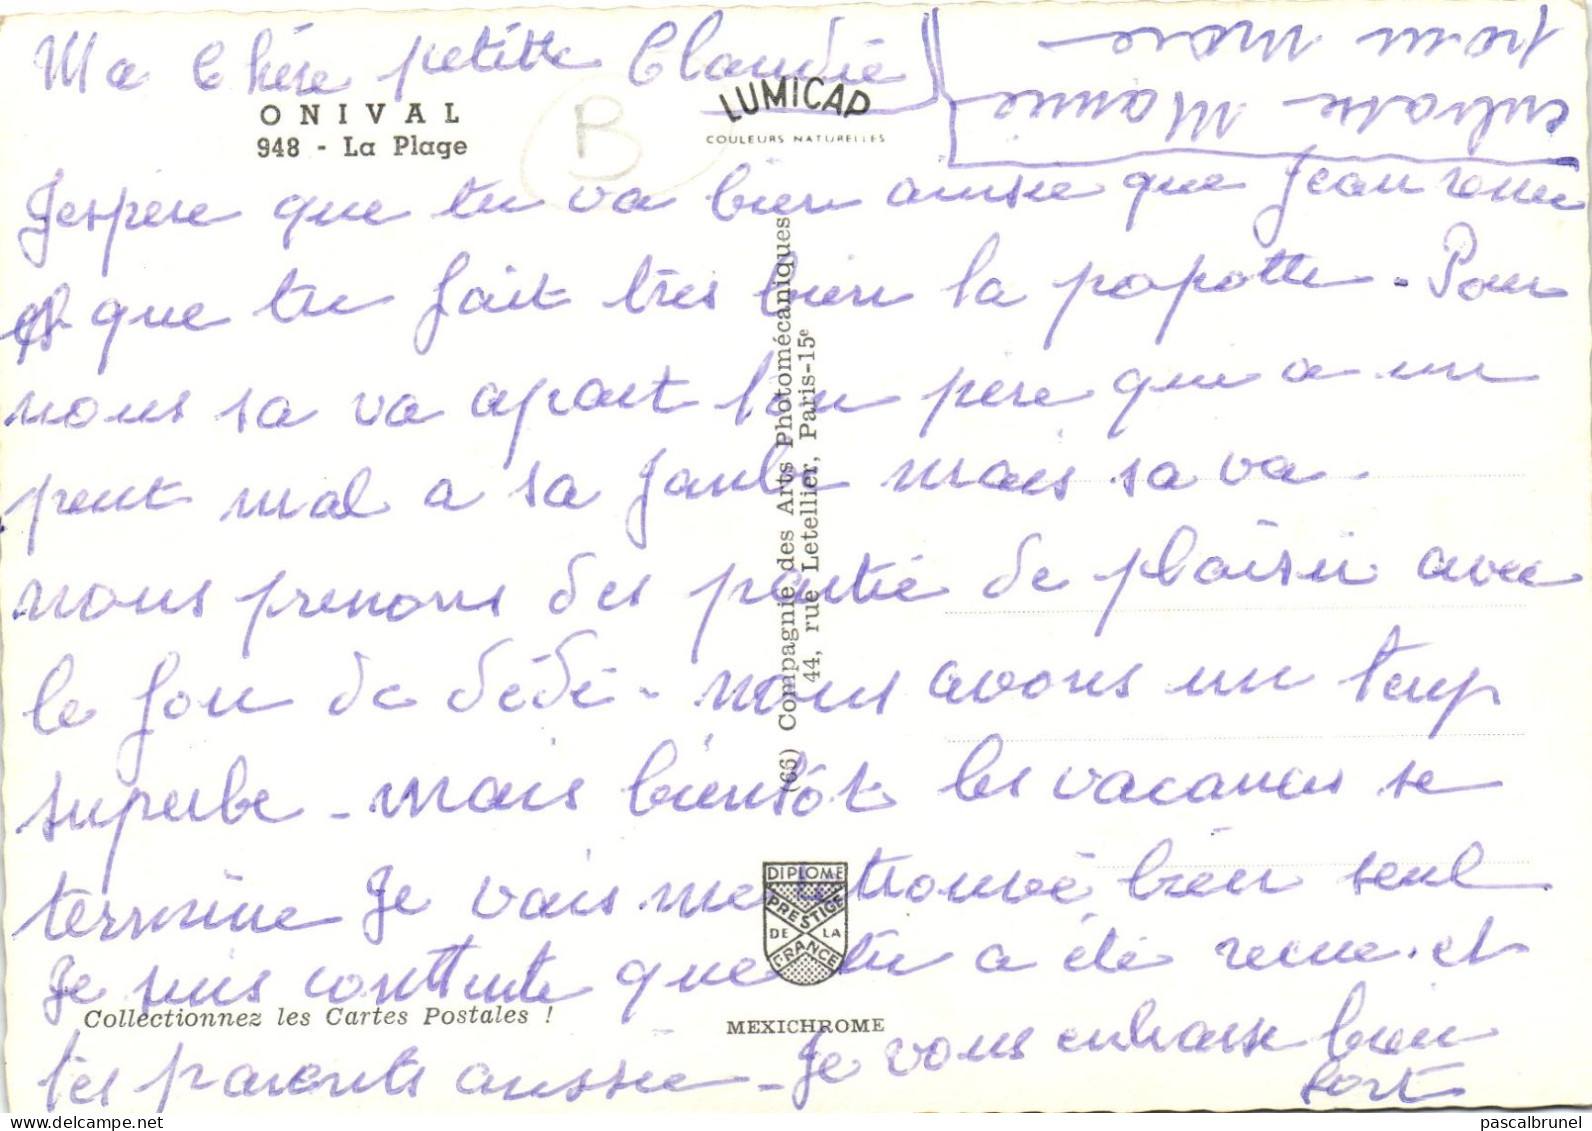 Ma Chère petitte Claudie
ONIVAL
948 - La Plage
LUMICAP
COULEURS NATURELLES
embrasse Mamie
pour moi
Jespère que tu va bien aussie que Jean
et que tu fait très bien la popotte - Pour
nous sa va apart ton père qui a un
peut mal a sa Jambe mais sa va -
nous prenons des partie de plaisir avec
le fou de dédé - nous avons un temp
superbe - mais bientôt les vacances se
termine Je vais me retrouvé bien seul
Je suis conttente que tu a été recue et
tes parents aussie - Je vous embrasse bien
fort
(66) Compagnie des Arts Photomécaniques
44, rue Letellier, Paris-15e
DIPLOME
PRESTIGE
DE LA
FRANCE
Collectionnez les Cartes Postales !
MEXICHROME
B
pascalbrunel